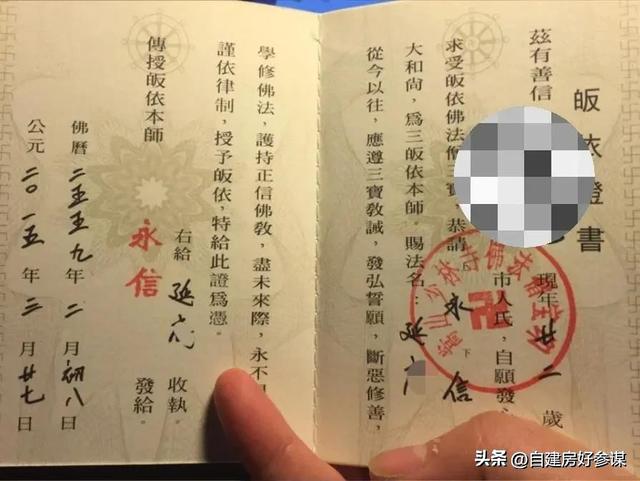 皈依證書
茲有善信 現年廿二歲
市人氏，自願發
求受皈依佛法僧三寶，恭請 永下信
大和尚，爲三皈依本師。賜法名：延
從今以往，應遵三寶教誡，發弘誓願，斷惡修善，
學修佛法，護持正信佛教，盡未來際，永不
謹依律制，授予皈依，特給此證爲憑。
右給 延 收執。
傳授皈依本師 永信 發給。
佛曆二五五九年二月初八日
公元二〇一五年三月廿七日
嵩山少林寺佛
头条 @自建房好参谋